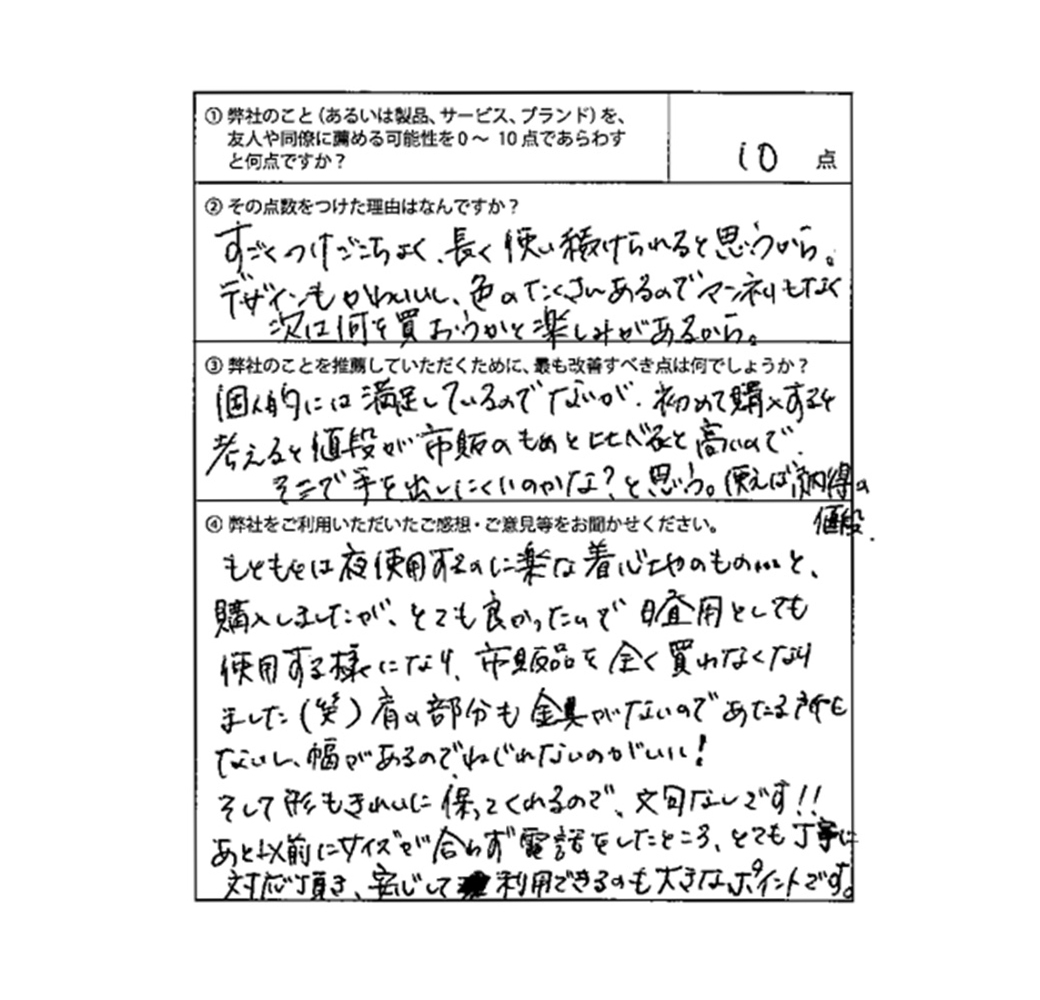 ① 弊社のこと（あるいは製品、サービス、ブランド）を、
友人や同僚に薦める可能性を0～10点であらわす
と何点ですか？
10 点
② その点数をつけた理由はなんですか？
すごくつけごこちよく、長く使い続けられると思うから。
デザインもかわいいし、色のたくさんあるのでマンネリもなく
次は何を買おうかと楽しみがあるから。
③ 弊社のことを推薦していただくために、最も改善すべき点は何でしょうか？
個人的には満足しているのでないが、初めて購入すると
考えると値段が市販のものと比べると高いので、
そこで手を出しにくいのかな？と思う。使えば納得の
値段。
④ 弊社をご利用いただいたご感想・ご意見等をお聞かせください。
もともとは夜使用するのに楽な着心地のもの…と、
購入しましたが、とても良かったので日昼用としても
使用する様になり、市販品を全く買わなくなり
ました（笑）肩の部分も金具がないのであたる所も
ないし、幅があるのでねじれないのがいい！
そして形もきれいに保ってくれるので、文句なしです！！
あと以前にサイズが合わず電話をしたところ、とても丁寧に
対応頂き、安心して利用できるのも大きなポイントです。